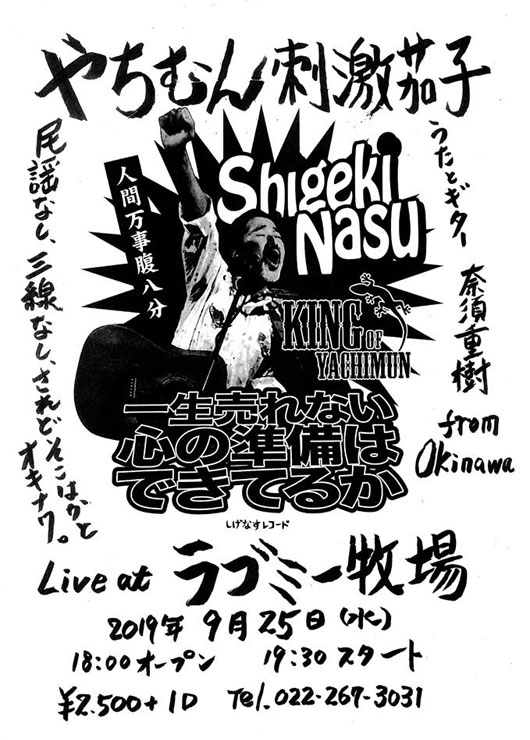 やちむん刺激茄子
うたとギター 奈須重樹
from
Okinawa
人間万事腹八分
Shigeki
Nasu
KING OF
YACHIMUN
尾謡なし、三線なし、されどそこはかと
オキナワ。
一生売れない
心の準備は
できてるか
しげなすレコード
Live at ラブミー牧場
2019年 9月25日(水)
18:00オープン 19:30スタート
¥2.500+1D Tel.022-267-3031